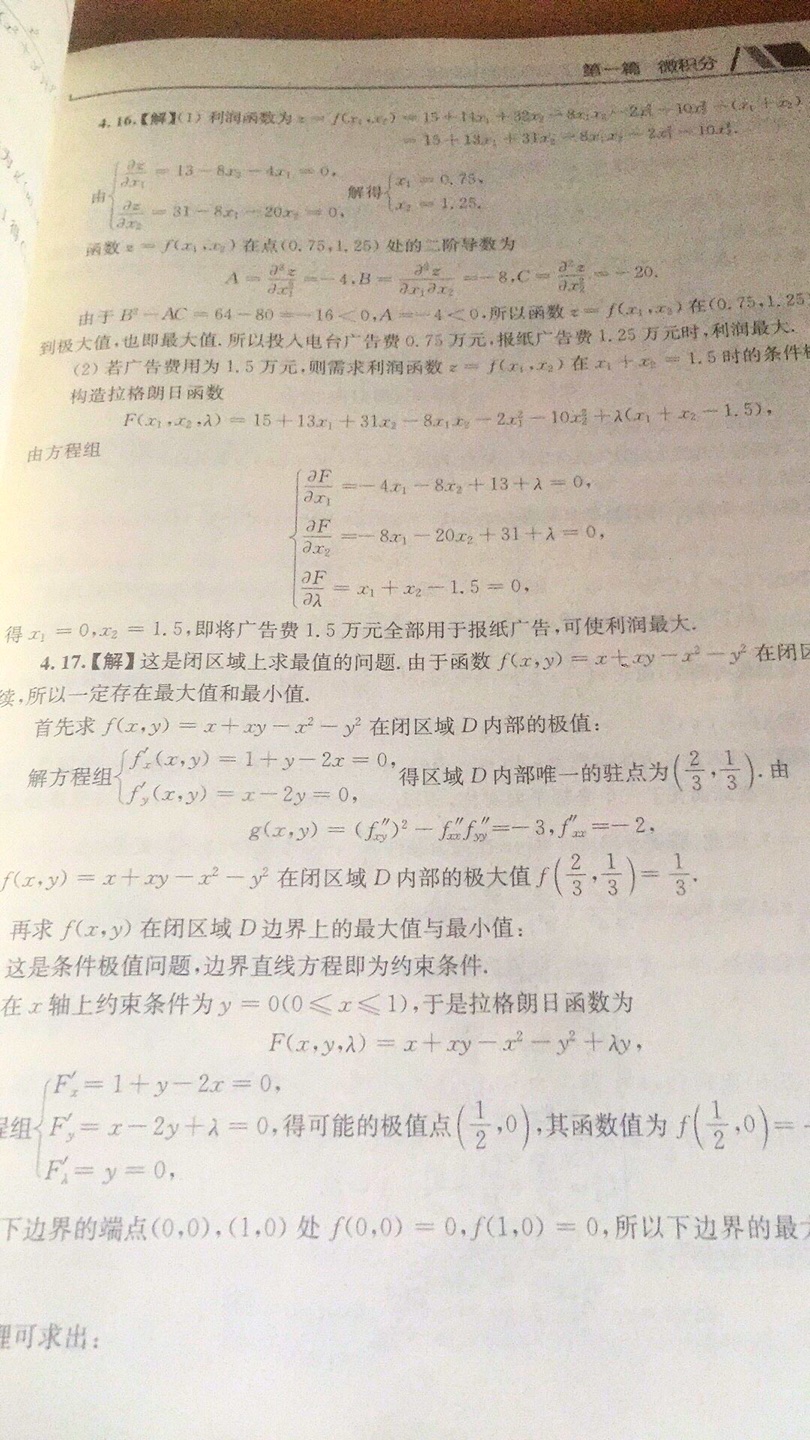 第一篇 微积分
4.16.【解】(1) 利润函数为 z = f(x₁,x₂) = 15+14x₁+32x₂-8x₁x₂-2x₁²-10x₂²-(x₁+x₂)
= 15+13x₁+31x₂-8x₁x₂-2x₁²-10x₂².
由{∂z/∂x₁ = 13-8x₂-4x₁ = 0, ∂z/∂x₂ = 31-8x₁-20x₂ = 0, 解得{x₁ = 0.75, x₂ = 1.25.
函数 z = f(x₁,x₂) 在点(0.75,1.25) 处的二阶导数为
A = ∂²z/∂x₁² = -4, B = ∂²z/∂x₁∂x₂ = -8, C = ∂²z/∂x₂² = -20.
由于 B²-AC = 64-80 = -16 < 0, A = -4 < 0, 所以函数 z = f(x₁,x₂) 在(0.75,1.25)
到极大值,也即最大值. 所以投入电台广告费 0.75 万元,报纸广告费 1.25 万元时,利润最大.
(2) 若广告费用为 1.5 万元,则需求利润函数 z = f(x₁,x₂) 在 x₁+x₂ = 1.5 时的条件
构造拉格朗日函数
F(x₁,x₂,λ) = 15+13x₁+31x₂-8x₁x₂-2x₁²-10x₂²+λ(x₁+x₂-1.5),
由方程组
{∂F/∂x₁ =-4x₁-8x₂+13+λ = 0,
∂F/∂x₂ =-8x₁-20x₂+31+λ = 0,
∂F/∂λ = x₁+x₂-1.5 = 0,
得 x₁ = 0,x₂ = 1.5,即将广告费 1.5 万元全部用于报纸广告,可使利润最大.
4.17.【解】这是闭区域上求最值的问题. 由于函数 f(x,y) = x+xy-x²-y² 在闭区
续,所以一定存在最大值和最小值.
首先求 f(x,y) = x+xy-x²-y² 在闭区域 D 内部的极值:
解方程组{f′ₓ(x,y) = 1+y-2x = 0, f′ᵧ(x,y) = x-2y = 0, 得区域 D 内部唯一的驻点为(2/3,1/3). 由
g(x,y) = (f″xy)²-f″xx f″yy =-3,f″xx =-2,
f(x,y) = x+xy-x²-y² 在闭区域 D 内部的极大值 f(2/3,1/3) = 1/3.
再求 f(x,y) 在闭区域 D 边界上的最大值与最小值:
这是条件极值问题,边界直线方程即为约束条件.
在 x 轴上约束条件为 y = 0(0 ⩽ x ⩽ 1),于是拉格朗日函数为
F(x,y,λ) = x+xy-x²-y²+λy,
{F′x = 1+y-2x = 0,
程组 F′y = x-2y+λ = 0,得可能的极值点(1/2,0),其函数值为 f(1/2,0) =
F′λ = y = 0,
下边界的端点(0,0),(1,0) 处 f(0,0) = 0,f(1,0) = 0,所以下边界的最
理可求出: